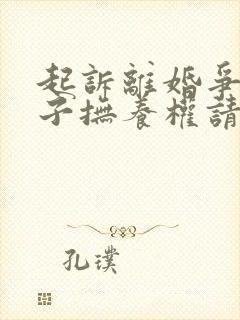 起訴離婚爭
子撫養權請
孔璞